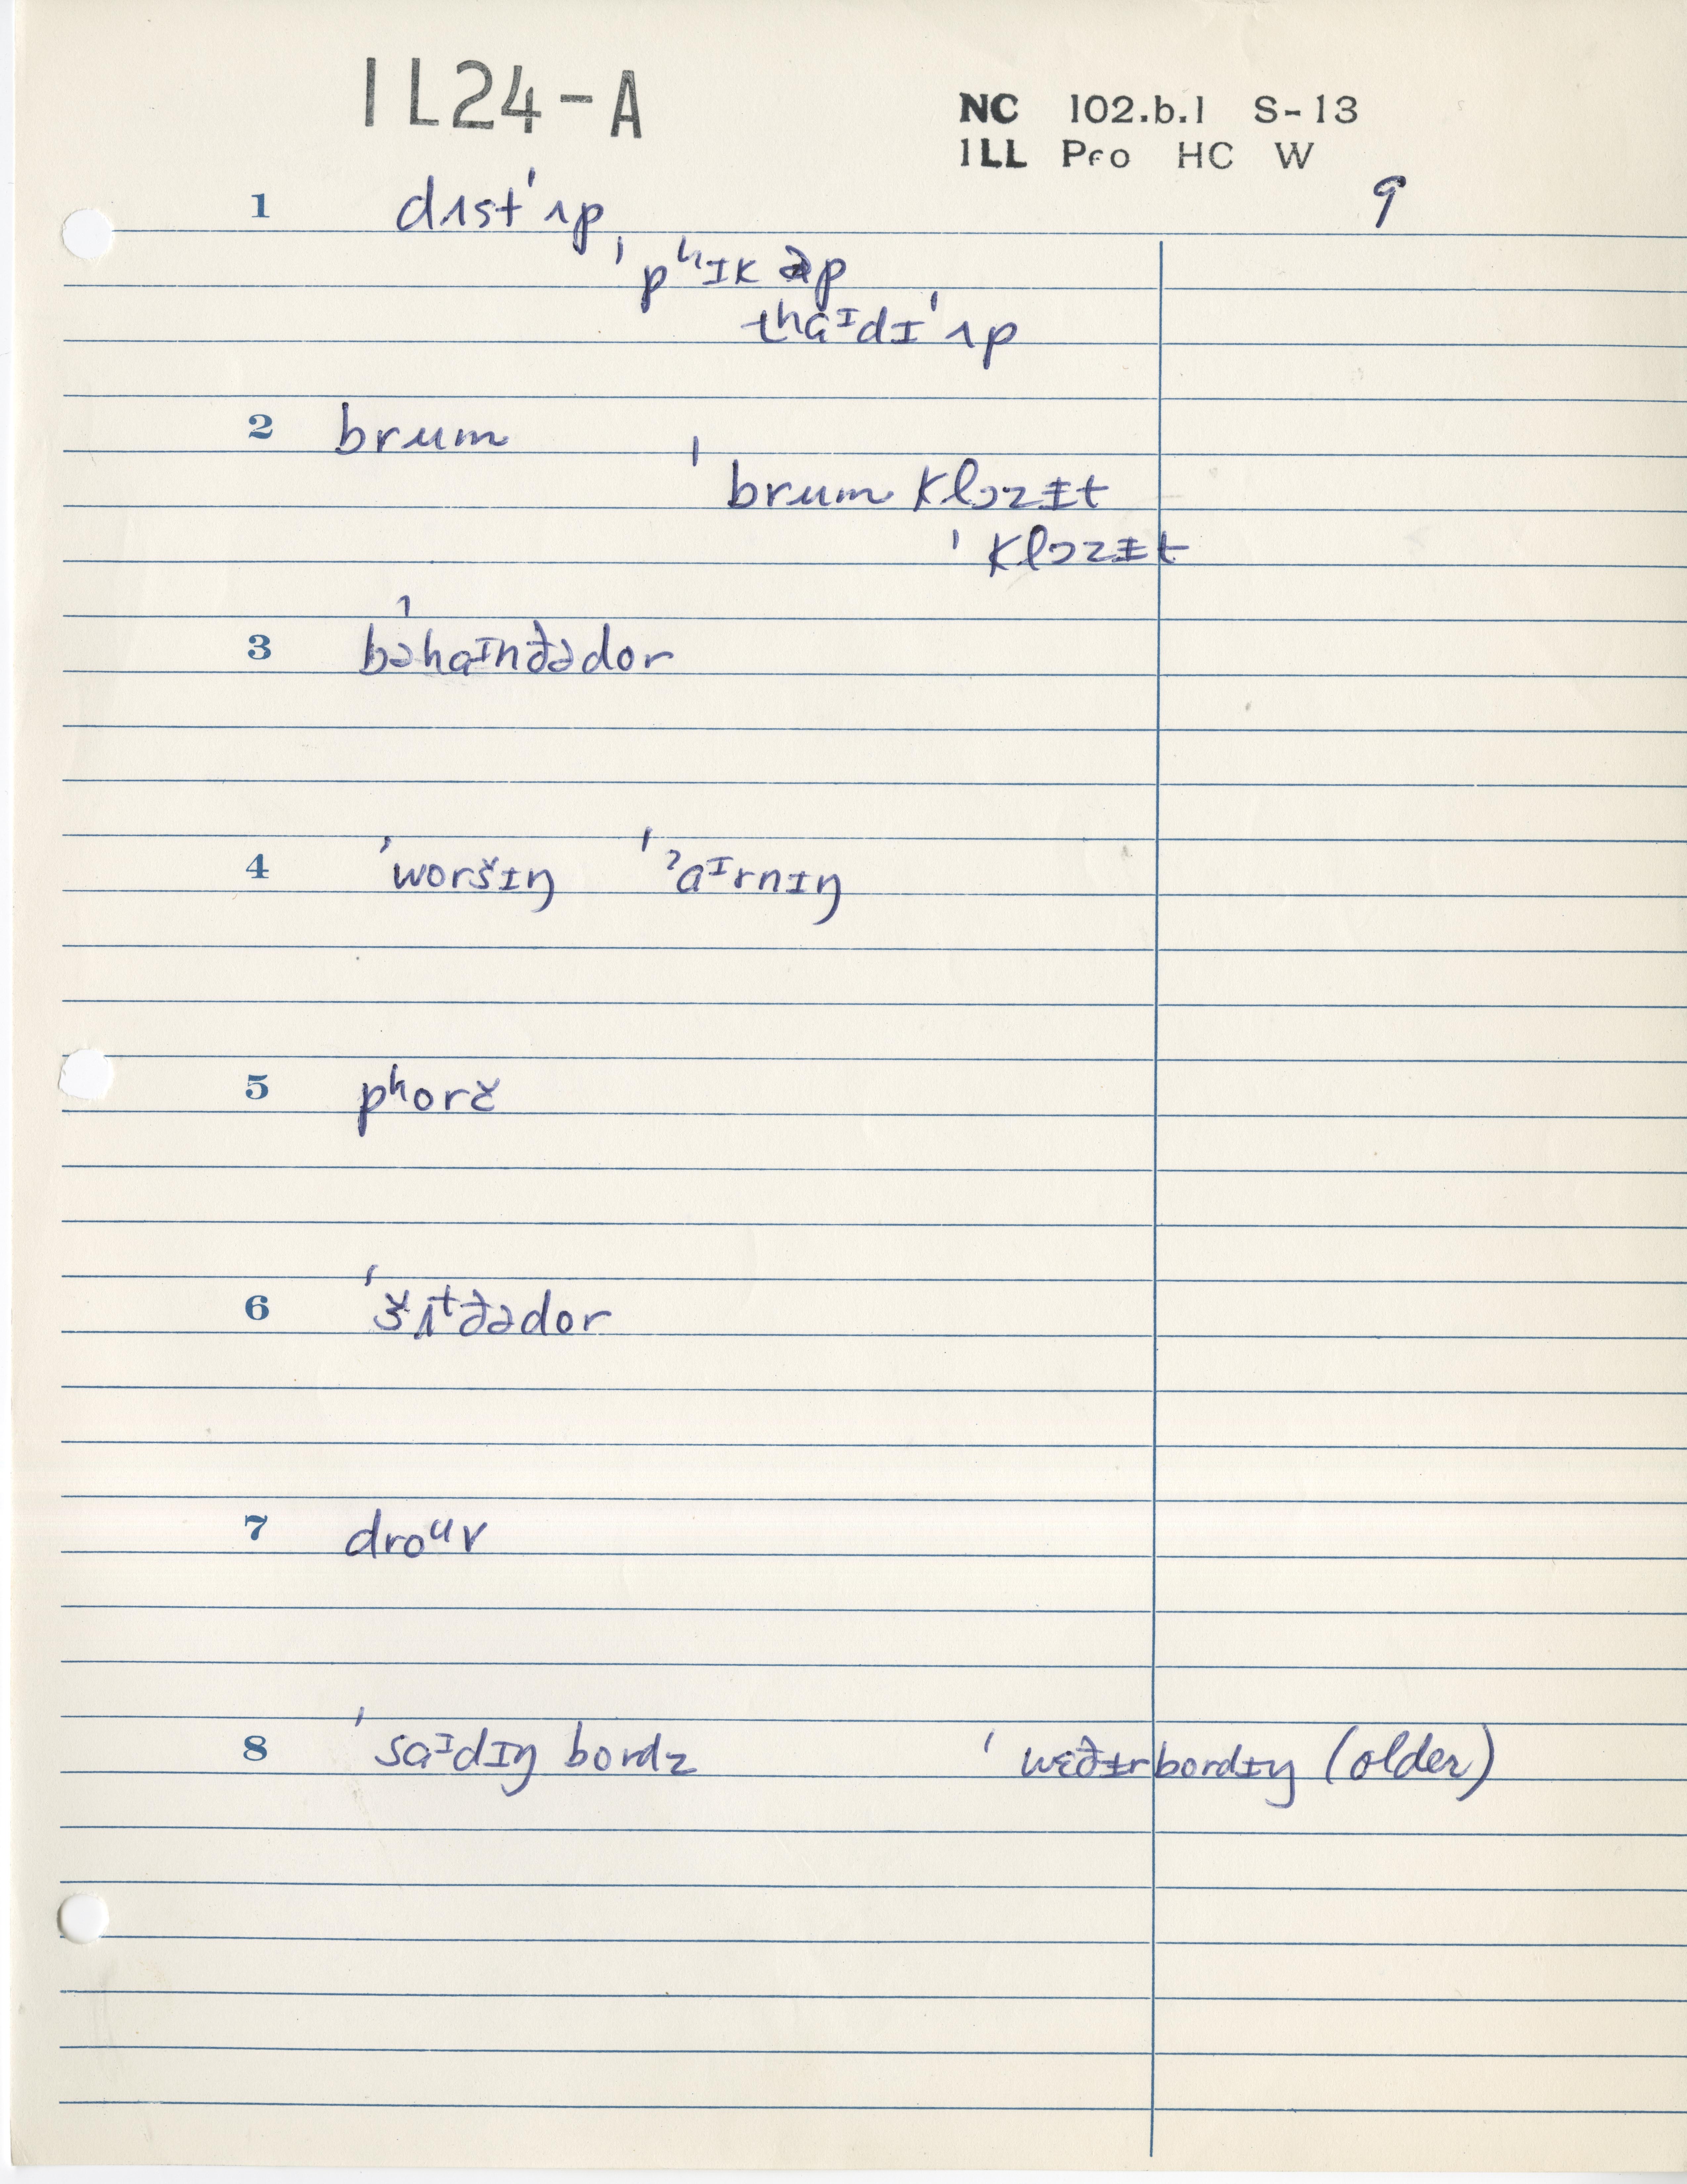 1L24-A
NC 102.b.1 S-13
ILL Pro HC W
9
1 dʌst'ʌp
'pʰɪk əp
tʰaᶦdɪ'ʌp
2 brum
'brum klɔzɪt
'klɔzɪt
3 bə'haᶦnđədor
4 'woršɪŋ 'ˀaᶦrnɪŋ
5 pʰorč
6 'šʌᵗđədor
7 droᵘr
8 'saᶦdɪŋ bordz 'wɛđɨrbordɪŋ (older)